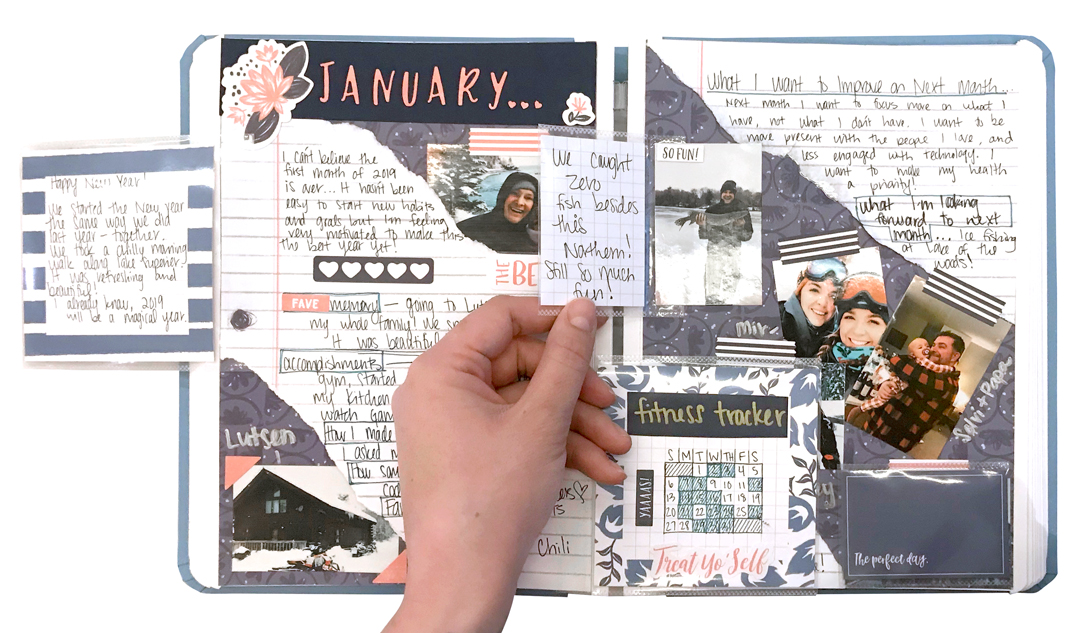 JANUARY...
Happy New Year!
We started the New year
the same way we did
last year - together.
We took a chilly morning
walk along Lake Superior.
It was refreshing and
beautiful!
I already know, 2019
will be a magical year.
I can't believe the
first month of 2019
is over... It hasn't been
easy to start new habits
and goals but I'm feeling
very motivated to make this
the best year yet!
THE BE
FAVE memory - going to Luts
my whole family! We
it was beautiful
accomplishments -
gym, started
my kitchen
watch Gam
How I made
I asked
How
Lutsen
Chili
We caught
zero
fish besides
this
Northern!
Still so much
fun!
SO FUN!
What I want to Improve on Next Month...
Next month I want to focus more on what I
have, not what I don't have. I want to be
more present with the people I love, and
less engaged with technology. I
want to make my health
a priority!
What I'm looking
forward to next
month... Ice fishing
at Lake of the
Woods!
fitness tracker
S M T W TH F S
1 2 3 4 5
6 7 8 9 10 11
13 17 18 19
20 22 23 24 25
27 28
YAAAAS!
Treat Yo' Self
The perfect day.